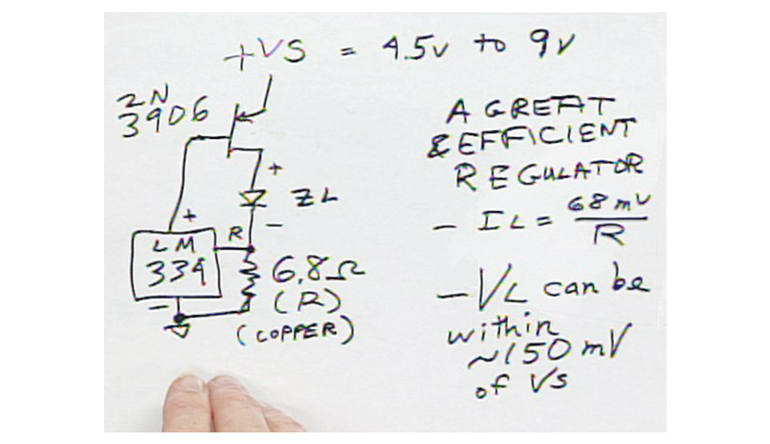 +VS = 4.5v to 9v
2N
3906
A GREAT
& EFFICIENT
REGULATOR
+
ZL
-
- IL = 68 mV
R
+
LM
334
-
R
6.8Ω
(R)
(COPPER)
- VL can be
within
~150 mV
of Vs